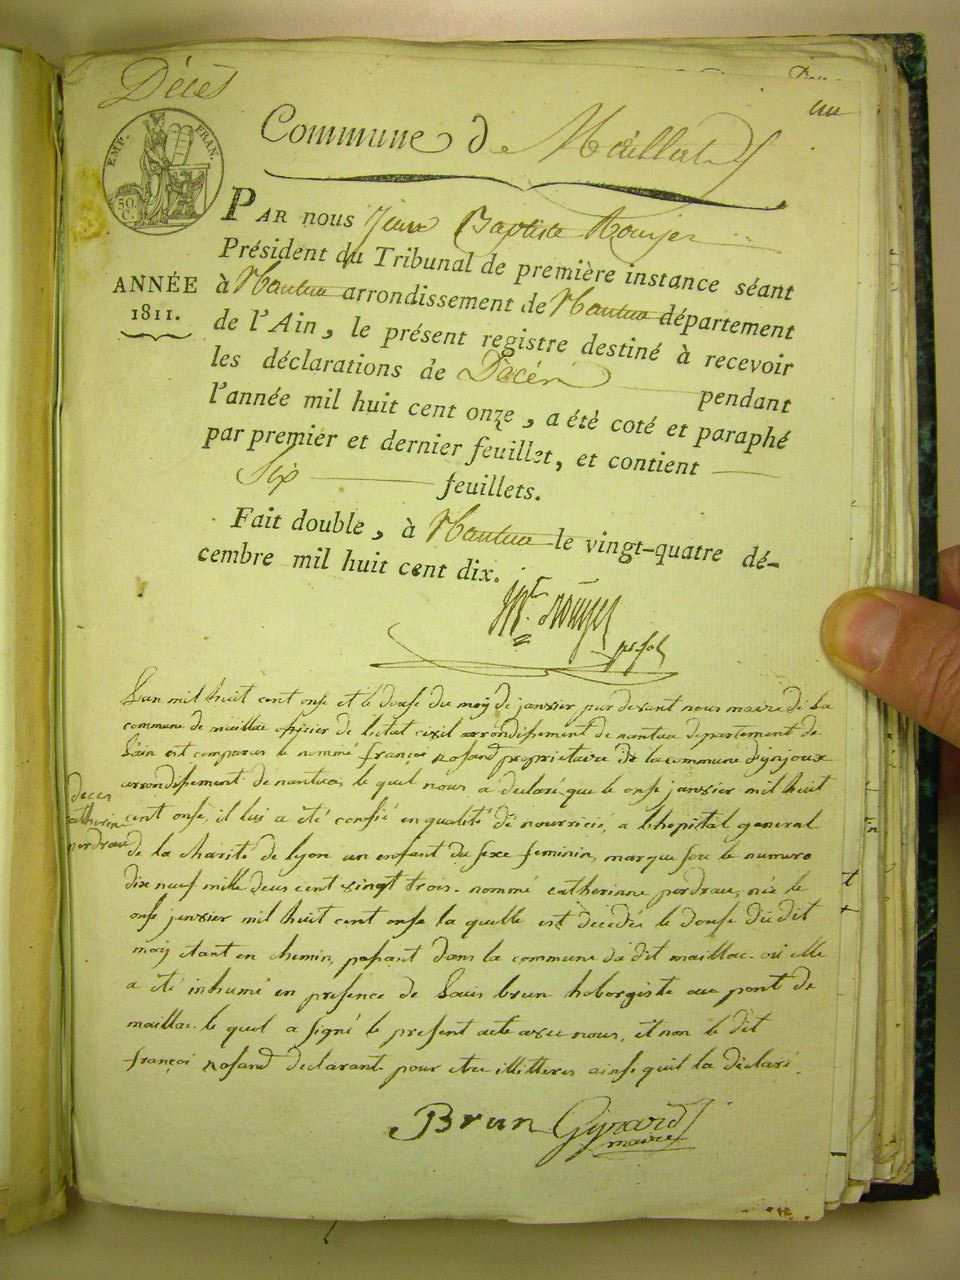 Décès
un
EMP. FRAN.
50. C.
Commune de Maillat
PAR nous Jean Baptiste Rouyer
Président du Tribunal de première instance séant
ANNÉE
1811.
à Nantua arrondissement de Nantua département
de l'Ain, le présent registre destiné à recevoir
les déclarations de Décès pendant
l'année mil huit cent onze, a été coté et paraphé
par premier et dernier feuillet, et contient
Six feuillets.
Fait double, à Nantua le vingt-quatre dé-
cembre mil huit cent dix.
Rouyer
L'an mil huit cent onse et le douse du moy de janvier par devant nous maire de la
commune de maillac officier de l'etat civil arrondissement de nantua departement de
L'ain est comparus le nommé françoi rosand proprietaire de la commune d'injoux
arrondissement de nantua, le quel nous a declaré que le onse janvier mil huit
deces
catherine
perdrau
cent onse, il lui a été confié en qualité de nourricié, a l'hopital general
de la charité de lyon un enfant du sexe feminin, marque sou le numero
dix neuf mille deus cent vingt trois. nommé catherinne perdrau, née le
onse janvier mil huit cent onse la quelle est décédée le douse du dit
moy etant en chemin, passant dans la commune du dit maillac. ou elle
a été inhumé en presence de Louis brun hobergiste au pont de
maillac. le quel a signé le present acte avec nous, et non le dit
françoi rosand declarant pour etre illitteres ainse quil la déclaré.
Brun Girard
maire